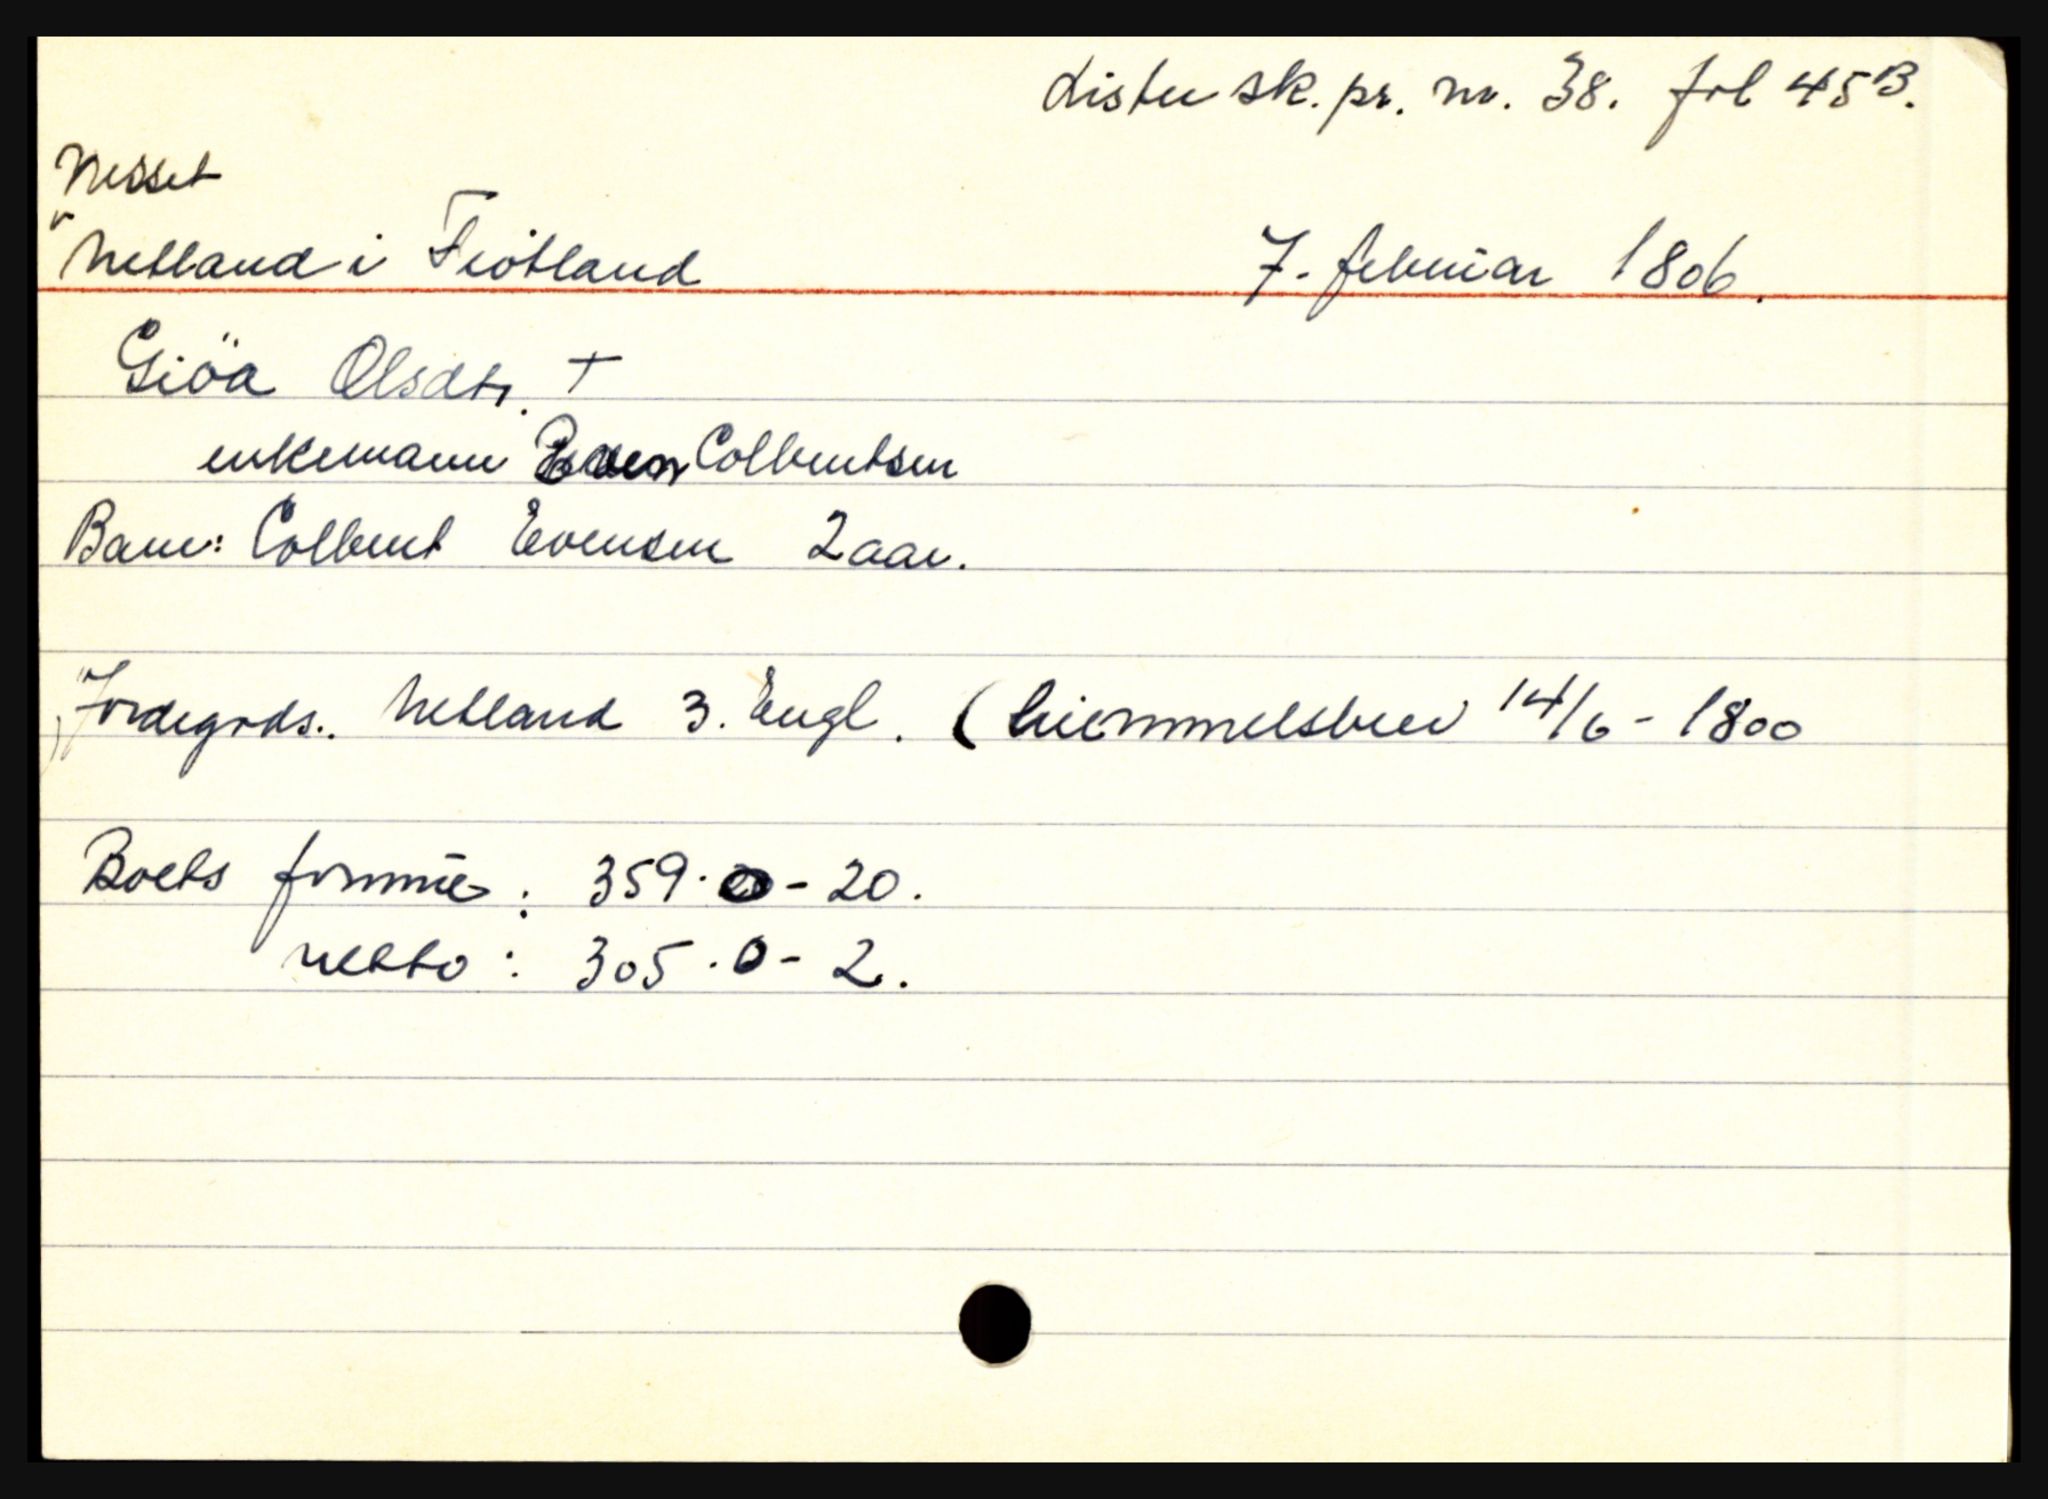 Lister sk.pr. nr. 38. fol 45B.
Nesset
"Netland i Fiotland
7. februar 1806.
Giöa Olsdtr. +
enkemann Even Colbentsen
Barn: Colbent Evensen 2 aar.
Jordegods.. Netland 3. Engl. (hiemmelsbrev 14/6 - 1800
Boets formue: 359. 0 - 20.
netto: 305. 0 - 2.